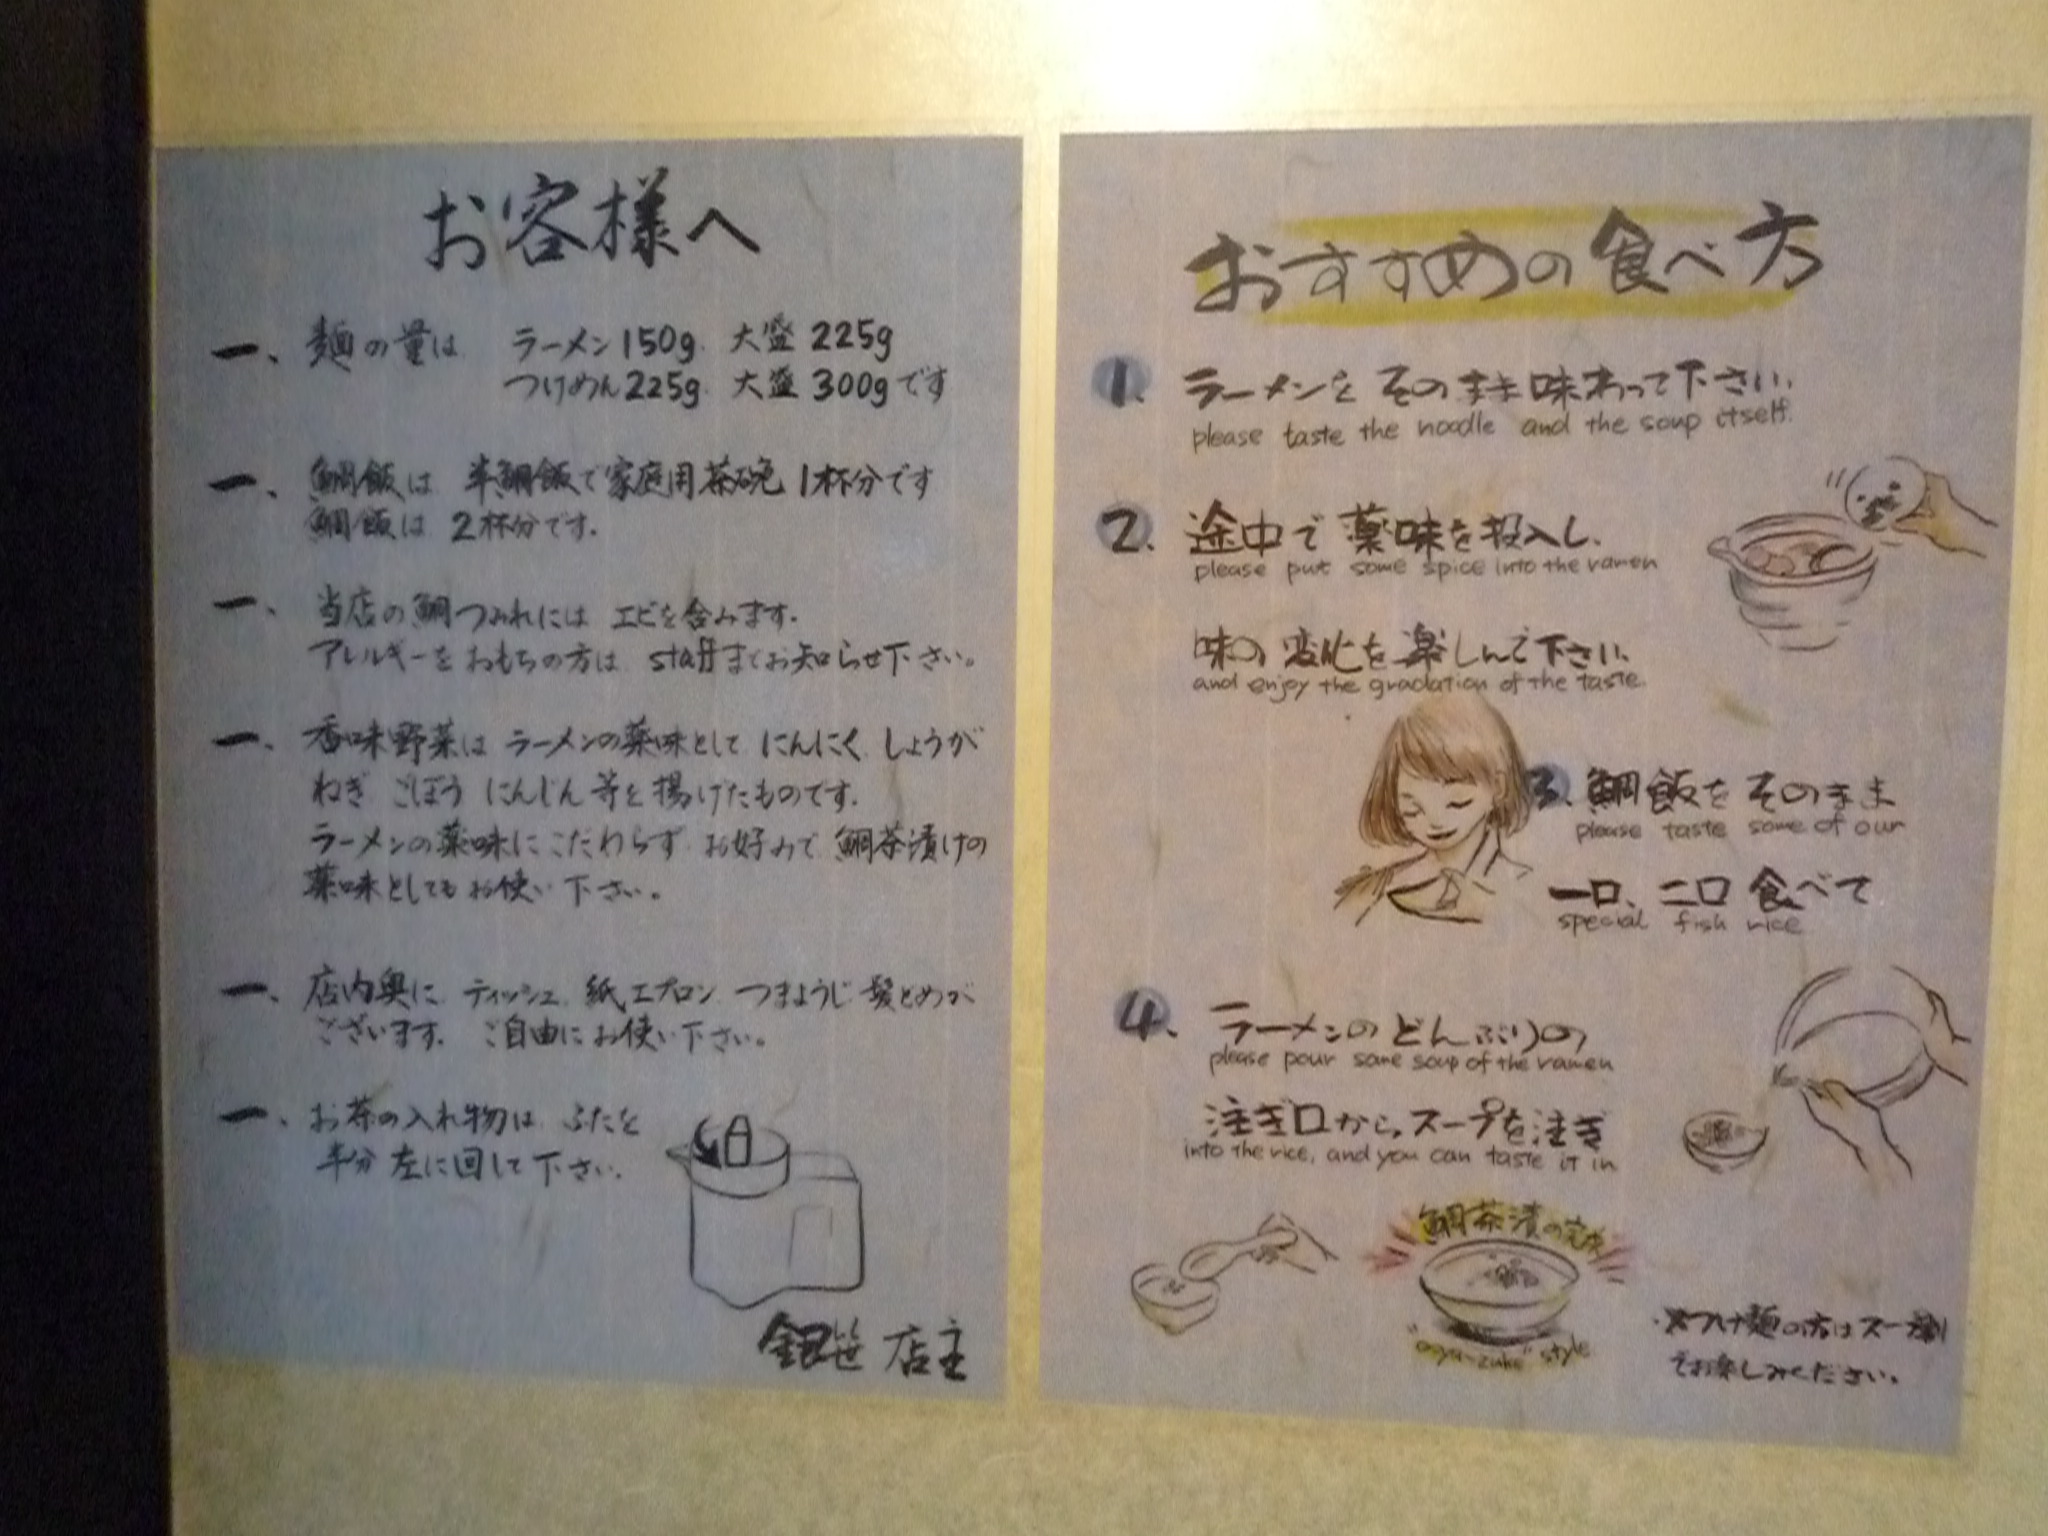 お客様へ
一、麺の量は ラーメン150g. 大盛225g
つけめん225g. 大盛300gです
一、鯛飯は 半鯛飯で家庭用茶碗1杯分です
鯛飯は 2杯分です.
一、当店の鯛つみれには エビを含みます.
アレルギーをおもちの方は staffまでお知らせ下さい。
一、香味野菜は ラーメンの薬味として にんにく しょうが
ねぎ ごぼう にんじん 等を揚げたものです.
ラーメンの薬味にこだわらず お好みで 鯛茶漬けの
薬味としてもお使い下さい。
一、店内奥に ティッシュ 紙エプロン つまようじ 髪どめが
ございます. ご自由にお使い下さい。
一、お茶の入れ物は ふたを
半分 左に回して下さい.
銀笹 店主
おすすめの食べ方
1. ラーメンを そのまま味わって下さい.
please taste the noodle and the soup itself.
2. 途中で薬味を投入し、
please put some spice into the ramen
味の変化を楽しんで下さい.
and enjoy the gradation of the taste.
3. 鯛飯をそのまま
please taste some of our
一口、二口 食べて
special fish rice
4. ラーメンのどんぶりの
please pour some soup of the ramen
注ぎ口から、スープを注ぎ
into the rice, and you can taste it in
鯛茶漬の完成
style
※つけ麺の方はスープ割り
でお楽しみください。